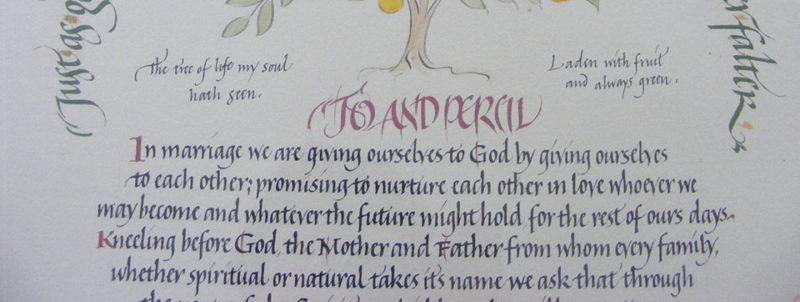 Just as
the tree of life my soul
hath seen.
Laden with fruit
and always green.
falter
JO AND PERCIL
In marriage we are giving ourselves to God by giving ourselves
to each other; promising to nurture each other in love whoever we
may become and whatever the future might hold for the rest of ours days.
Kneeling before God, the Mother and Father from whom every family,
whether spiritual or natural takes its name we ask that through